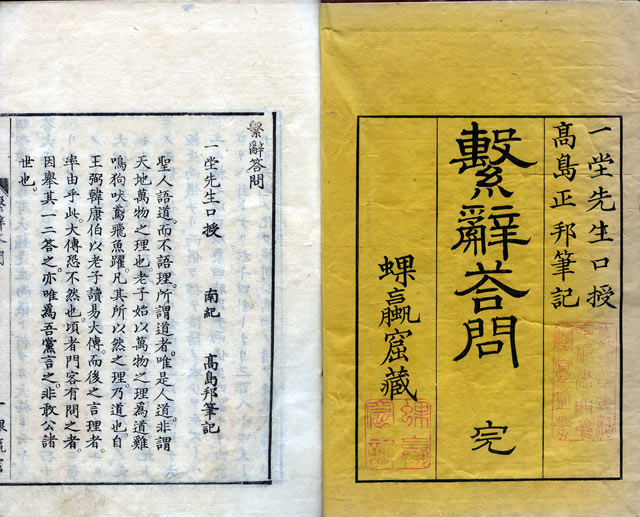 一堂先生口授
髙島正邦筆記
繫辭荅問 完
蜾蠃窟藏
繫辭荅問
一堂先生口授
南紀 髙島邦筆記
聖人語道。而不語理。所謂道者。唯是人道。非謂
天地萬物之理也。老子始以萬物之理為道。雞
鳴狗吠。鳶飛魚躍。凡其所以然之理。乃道也。自
王弼韓康伯以老子讀易大傳。而後之言理者。
率由乎此。大傳恐不然也。頃者門客有問之者。
因舉其一二荅之。亦唯為吾黨言之。非敢公諸
世也。